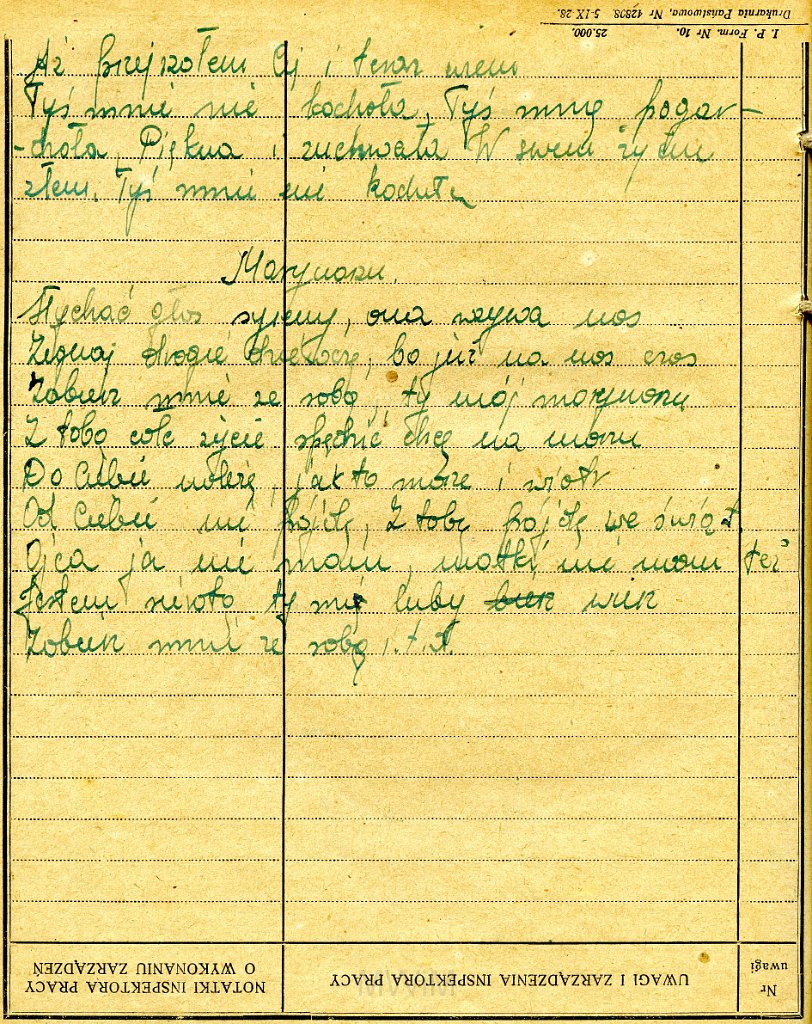 Drukarnia Państwowa, Nr 42808. 5-IX 28.
I. P. Form. Nr 10. 25.000.
Aż przejrzałem Oj i teraz wiem
Tyś mnie nie kochała, Tyś mną pogar-
-dzała, Piękna i zuchwała W swem życiu
złem. Tyś mnie nie kochała
Marynarz.
Słychać głos syreny, ona wzywa nas
Żegnaj drogie dziewczę, bo już na nas czas
Zabierz mnie ze sobą, ty mój marynarzu
Z tobą całe życie spędzić chcę na morzu
Do Ciebie należę, jak to morze i wiatr
Od Ciebie nie pójdę, Z tobą pójdę we świat
Ojca ja nie mam, matki nie mam też
Jestem sierotą ty mię luby wiesz
Zabierz mnie ze sobą i.t.d.
NOTATKI INSPEKTORA PRACY O WYKONANIU ZARZĄDZEŃ
UWAGI I ZARZĄDZENIA INSPEKTORA PRACY
Nr uwagi